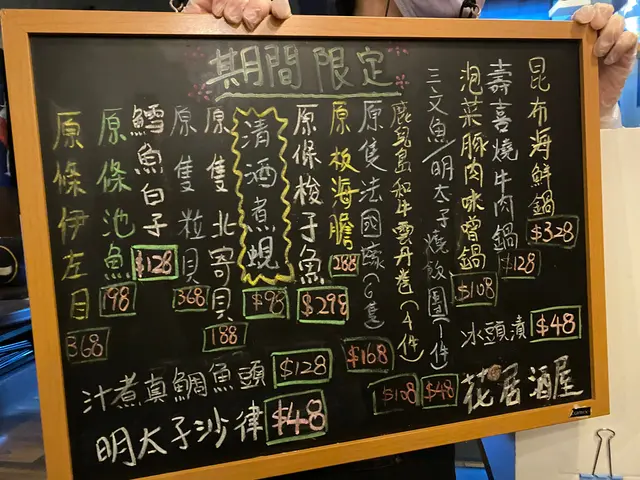 期間限定
昆布海鮮鍋 $328
壽喜燒牛肉鍋 $128
泡菜豚肉味噌鍋 $108
三文魚/明太子燒飯團(1件) $48
鹿兒島和牛雲丹卷(4件) $108
原隻法國蠔(6隻) $168
原板海膽 288
原條梭子魚 $298
清酒煮蜆 $98
原隻北寄貝 188
原隻粒貝 368
鱈魚白子 $128
原條池魚 198
原條伊左目 368
冰頭漬 $48
汁煮真鯛魚頭 $128
明太子沙律 $48
花居酒屋